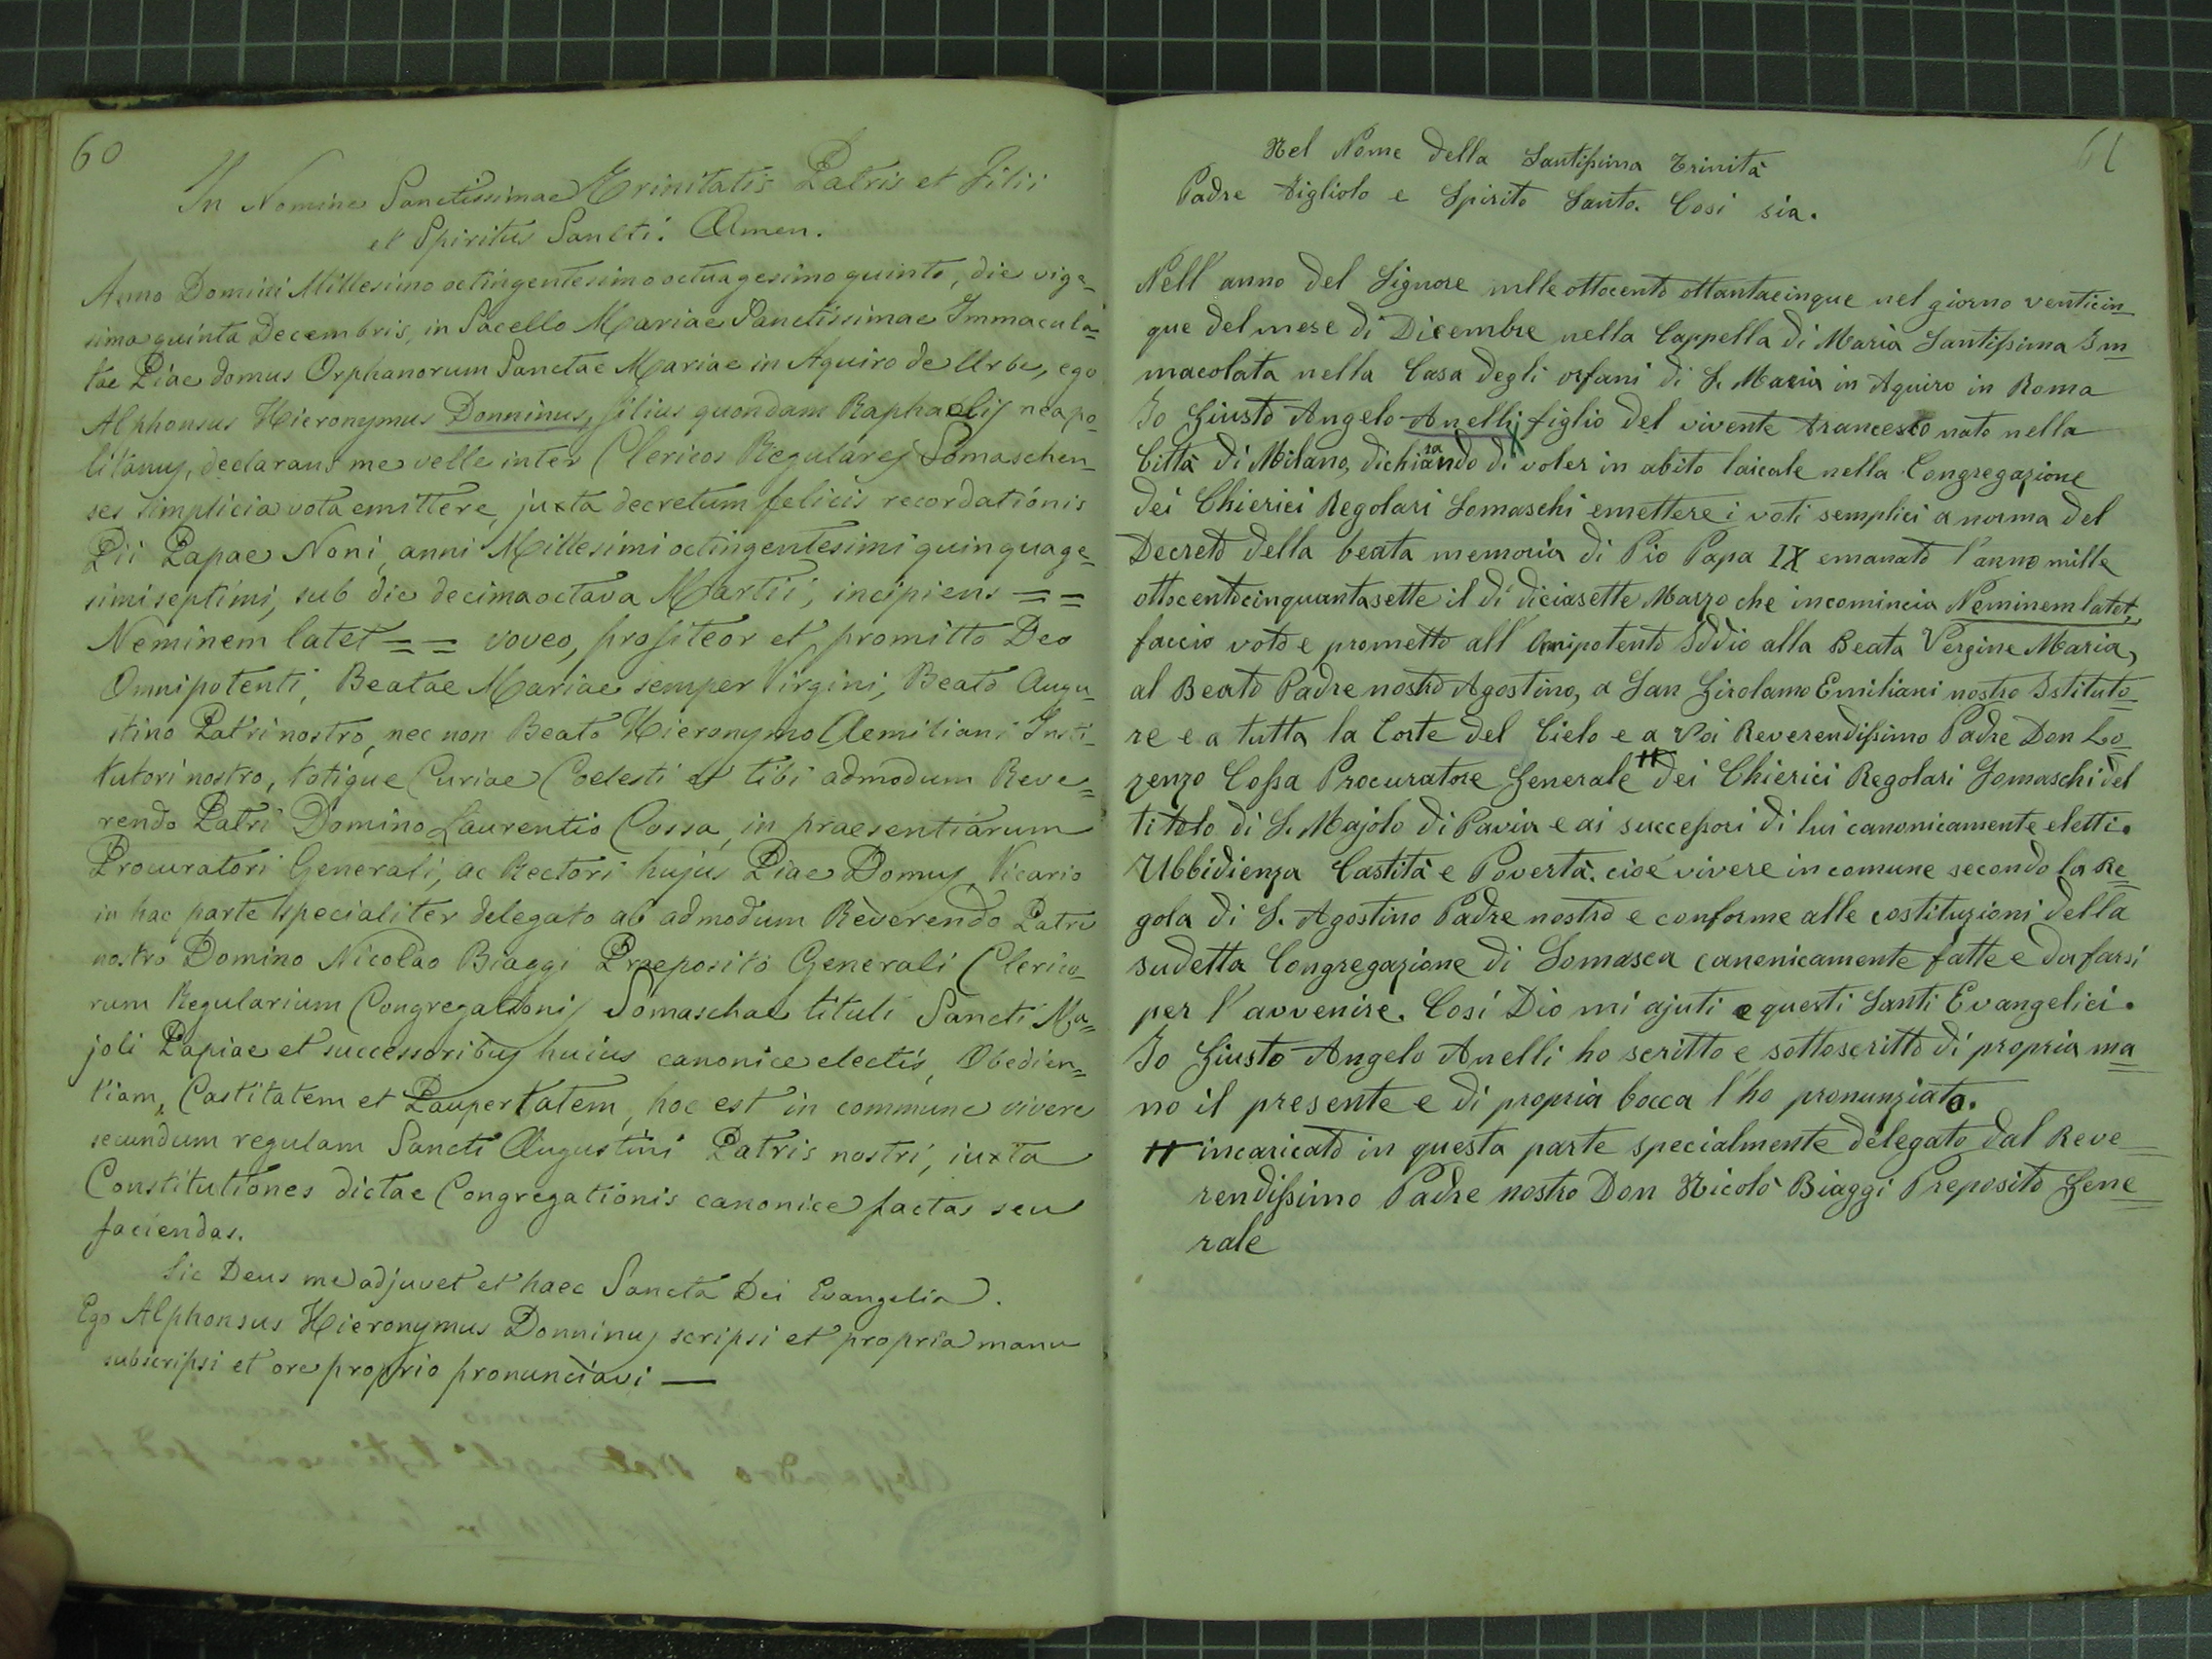 60
In Nomine Sanctissimae Trinitatis Patris et Filii
et Spiritus Sancti. Amen.
Anno Domini Millesimo octingentesimo octuagesimo quinto, die vige=
sima quinta Decembris, in Sacello Mariae Sanctissimae Immacula=
tae Piae domus Orphanorum Sanctae Mariae in Aquiro de Urbe, ego
Alphonsus Hieronymus Donninus, filius quondam Raphaelis neapo=
litanus, declarans me velle inter Clericos Regulares Somaschen=
ses simplicia vota emittere, juxta decretum felicis recordationis
Pii Papae Noni, anni Millesimi octingentesimi quinquage=
simi septimi, sub die decima octava Martii, incipiens = =
Neminem latet = = voveo, profiteor et promitto Deo
Omnipotenti, Beatae Mariae semper Virgini, Beato Augu=
stino Patri nostro, nec non Beato Hieronymo Aemiliani Insti=
tutori nostro, totique Curiae Coelesti et tibi admodum Reve=
rendo Patri Domino Laurentio Cossa, in praesentiarum
Procuratori Generali, ac Rectori hujus Piae Domus, Vicario
in hac parte specialiter delegato ab admodum Reverendo Patre
nostro Domino Nicolao Biaggi Praeposito Generali Clerico=
rum Regularium Congregationis Somaschae tituli Sancti Ma=
joli Papiae et successoribus huius canonice electis, Obedien=
tiam, Castitatem et Paupertatem, hoc est in commune vivere
secundum regulam Sancti Augustini Patris nostri, iuxta
Constitutiones dictae Congregationis canonice factas seu
faciendas.
Sic Deus me adjuvet et haec Sancta Dei Evangelia.
Ego Alphonsus Hieronymus Donninus scripsi et propria manu
subscripsi et ore proprio pronunciavi —
61
Nel Nome della Santissima Trinità
Padre Figliolo e Spirito Santo. Cosi sia.
Nell' anno del Signore mille ottocento ottantacinque nel giorno venticin=
que del mese di Dicembre nella Cappella di Maria Santissima Im=
macolata nella Casa degli orfani di S. Maria in Aquiro in Roma
Io Giusto Angelo Anelli figlio del vivente Francesco nato nella
Città di Milano, dichiarando di voler in abito laicale nella Congregazione
dei Chierici Regolari Somaschi emettere i voti semplici a norma del
Decreto della beata memoria di Pio Papa IX emanato l' anno mille
ottocentocinquantasette il dì diciasette Marzo che incomincia Neminem latet,
faccio voto e prometto all' Onipotento Iddio alla Beata Vergine Maria,
al Beato Padre nostro Agostino, a San Girolamo Emiliani nostro Istituto=
re e a tutta la Corte del Cielo e a Voi Reverendissimo Padre Don Lo=
renzo Cossa Procuratore Generale # dei Chierici Regolari Somaschi del
titolo di S. Majolo di Pavia e ai successori di lui canonicamente eletti.
Ubbidienza Castità e Povertà. cioè vivere in comune secondo la Re=
gola di S. Agostino Padre nostro e conforme alle costituzioni della
sudetta Congregazione di Somasca canonicamente fatte e da farsi
per l' avvenire. Cosi Dio mi ajuti e questi Santi Evangelici.
Io Giusto Angelo Anelli ho scritto e sottoscritto di propria ma=
no il presente e di propria bocca l' ho pronunziato.
# incaricato in questa parte specialmente delegato dal Reve=
rendissimo Padre nostro Don Nicolò Biaggi Preposito Gene=
rale